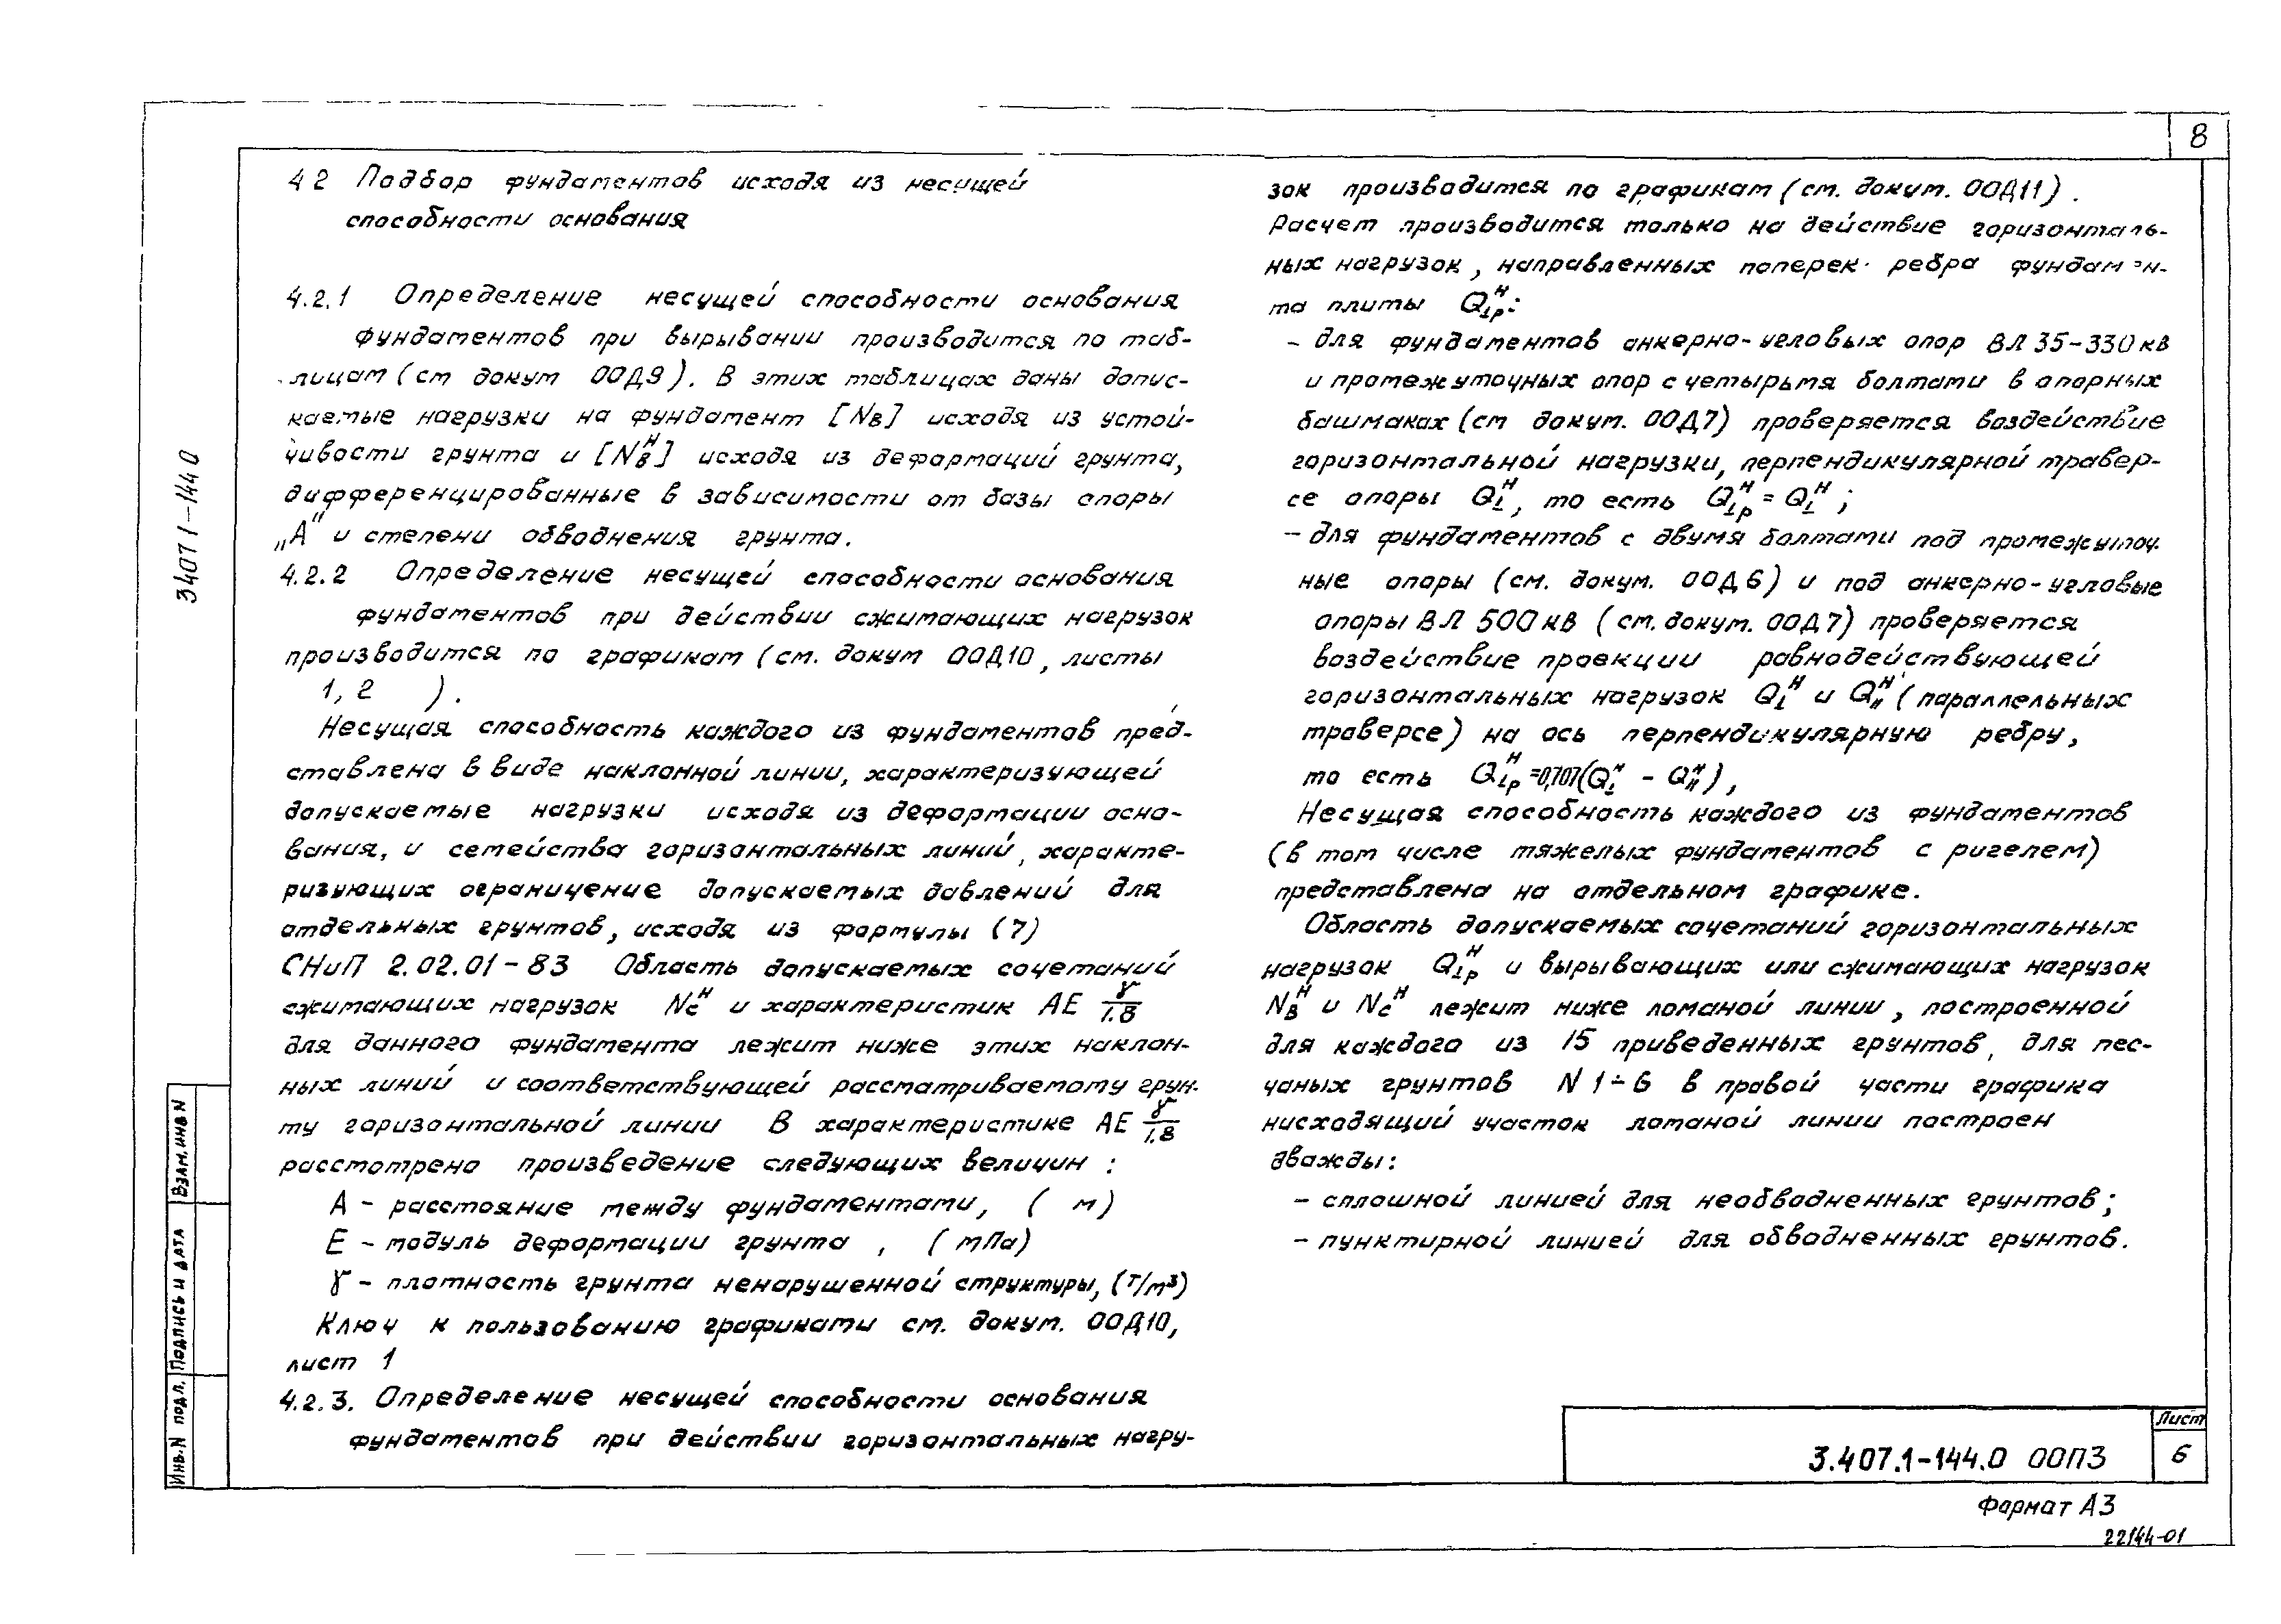 8
4 2 Подбор фундаментов исходя из несущей
способности основания
4.2.1 Определение несущей способности основания
фундаментов при вырывании производится по таб-
лицам (см докум 00Д9). В этих таблицах даны допус-
каемые нагрузки на фундамент [Nв] исходя из устой-
чивости грунта и [Nвᴴ] исходя из деформаций грунта,
дифференцированные в зависимости от базы опоры
„А" и степени обводнения грунта.
4.2.2 Определение несущей способности основания
фундаментов при действии сжимающих нагрузок
производится по графикам (см. докум 00Д10, листы
1, 2 ).
Несущая способность каждого из фундаментов пред-
ставлена в виде наклонной линии, характеризующей
допускаемые нагрузки исходя из деформации осно-
вания, и семейства горизонтальных линий, характе-
ризующих ограничение допускаемых давлений для
отдельных грунтов, исходя из формулы (7)
СНиП 2.02.01-83 Область допускаемых сочетаний
сжимающих нагрузок Ncᴴ и характеристик AE γ/1.8
для данного фундамента лежит ниже этих наклон-
ных линий и соответствующей рассматриваемому грун-
ту горизонтальной линии В характеристике AE γ/1.8
рассмотрено произведение следующих величин :
А - расстояние между фундаментами, ( м)
Е - модуль деформации грунта , ( мПа)
γ - плотность грунта ненарушенной структуры, (т/м³)
Ключ к пользованию графиками см. докум. 00Д10,
лист 1
4.2.3. Определение несущей способности основания
фундаментов при действии горизонтальных нагру-
зок производится по графикам (см. докум. 00Д11) .
Расчет производится только на действие горизонталь-
ных нагрузок, направленных поперек ребра фундамен-
та плиты Q⊥рᴴ:
- для фундаментов анкерно-угловых опор ВЛ 35-330 кВ
и промежуточных опор с четырьмя болтами в опорных
башмаках (см докум. 00Д7) проверяется воздействие
горизонтальной нагрузки, перпендикулярной травер-
се опоры Q⊥ᴴ, то есть Q⊥рᴴ = Q⊥ᴴ ;
- для фундаментов с двумя болтами под промежуточ.
ные опоры (см. докум. 00Д6) и под анкерно-угловые
опоры ВЛ 500 кВ (см. докум. 00Д7) проверяется
воздействие проекции равнодействующей
горизонтальных нагрузок Q⊥ᴴ и Q॥ᴴ (параллельных
траверсе) на ось перпендикулярную ребру,
то есть Q⊥рᴴ =0,707(Q⊥ᴴ - Q॥ᴴ),
Несущая способность каждого из фундаментов
(в том числе тяжелых фундаментов с ригелем)
представлена на отдельном графике.
Область допускаемых сочетаний горизонтальных
нагрузок Q⊥рᴴ и вырывающих или сжимающих нагрузок
Nвᴴ и Ncᴴ лежит ниже ломаной линии, построенной
для каждого из 15 приведенных грунтов, для пес-
чаных грунтов N 1÷6 в правой части графика
нисходящий участок ломаной линии построен
дважды:
- сплошной линией для необводненных грунтов;
- пунктирной линией для обводненных грунтов.
3 407 1-144 0
Взам. инв N
Подпись и дата
Инв. N подл.
3.407.1-144.0 00ПЗ
Лист
6
Формат А3
22144-01